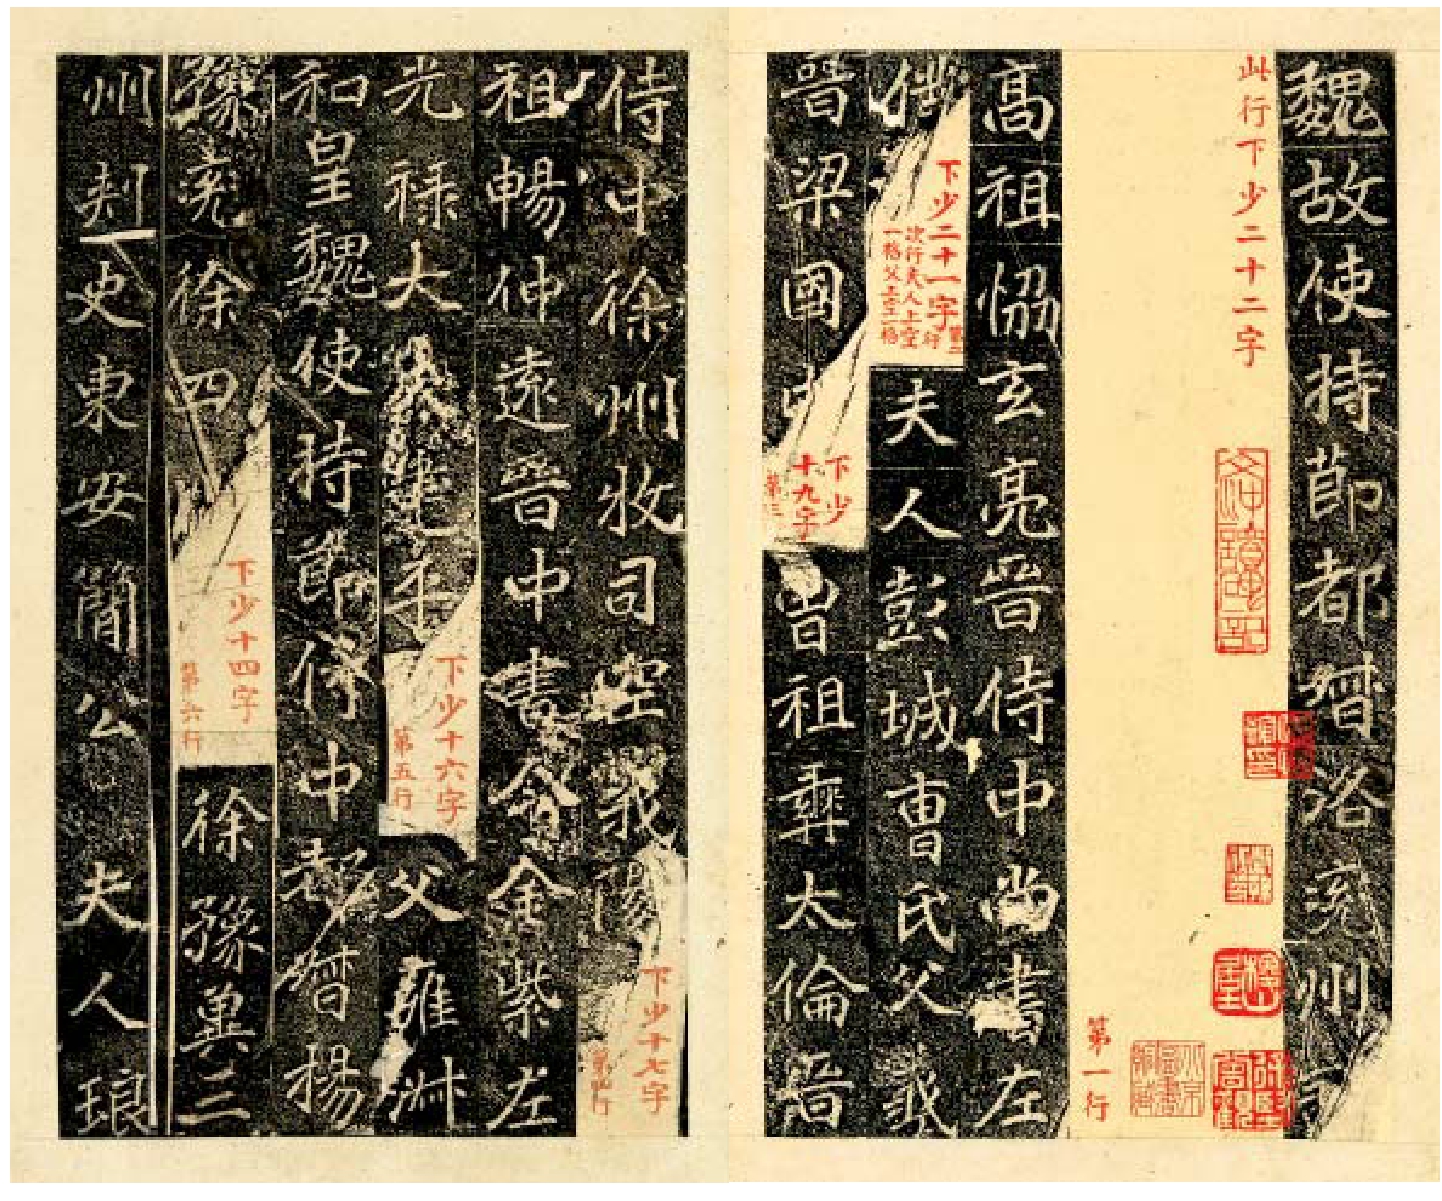 魏故使持節都督洛兗州
此行下少二十二字
第一行
高祖協玄亮晉侍中尚書左
僕
下少二十一字
第二行
次行夫人上空
一格父上空一格
夫人彭城曹氏父羲
晉梁國中
下少
十九字
第三
曾祖彝太倫晉
侍中徐州牧司空義陽
下少十七字
祖暢仲遠晉中書令金紫左
光祿大夫建平
下少十六字
第五行
父雍淑
和皇魏使持節侍中都督揚
豫兗徐四
下少十四字
第六行
徐豫冀三
州刺史東安簡公夫人琅